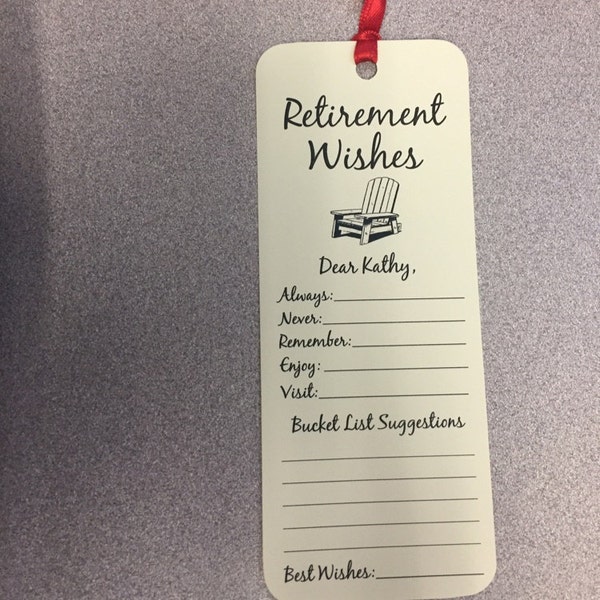 Retirement
Wishes
Dear Kathy,
Always:
Never:
Remember:
Enjoy:
Visit:
Bucket List Suggestions
Best Wishes: